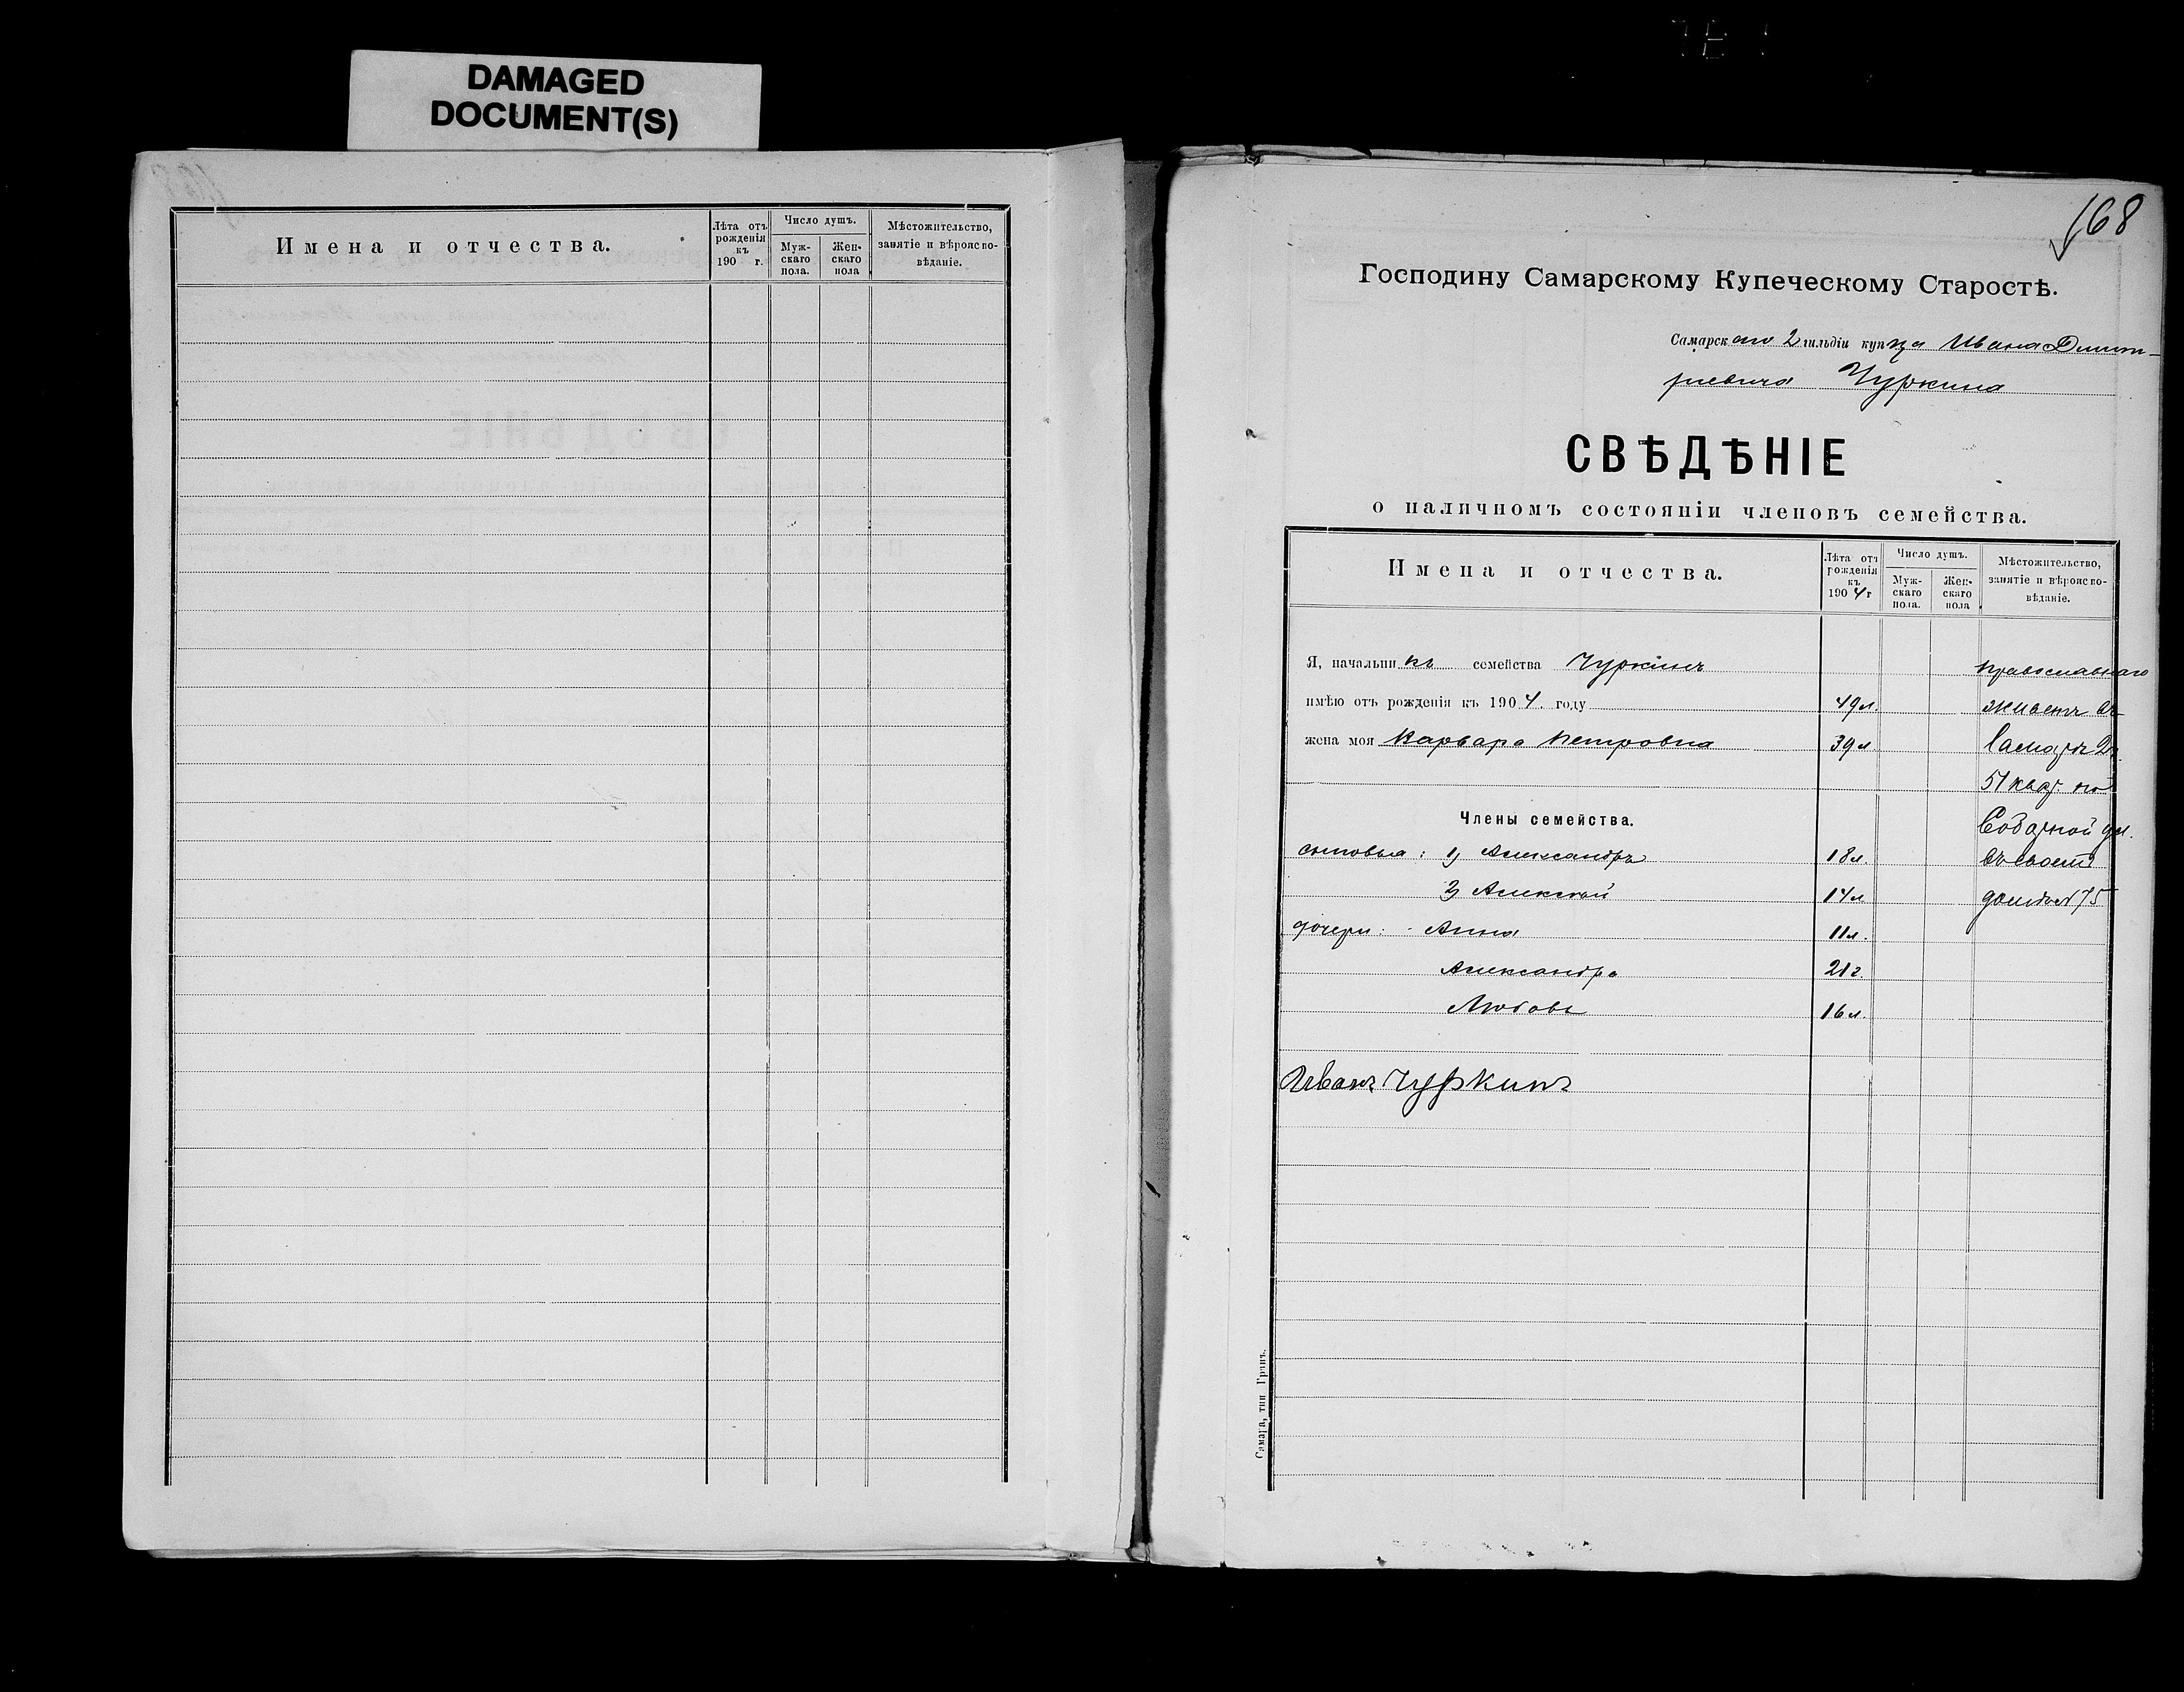 DAMAGED
DOCUMENT(S)
Имена и отчества.
Лѣта отъ рожденія къ 190 г.
Число душъ.
Мужскаго пола.
Женскаго пола
Мѣстожительство, занятіе и вѣроисповѣданіе.
168
Господину Самарскому Купеческому Старостѣ.
Самарскаго 2 гильдіи купца Ивана Димит-
ріевича Чуркина
СВѢДѢНІЕ
о наличномъ состояніи членовъ семейства.
Имена и отчества.
Лѣта отъ рожденія къ 1904 г
Число душъ.
Мужскаго пола.
Женскаго пола
Мѣстожительство, занятіе и вѣроисповѣданіе.
Я, начальникъ семейства Чуркинъ православнаго
имѣю отъ рожденія къ 1904. году 49 л. живетъ въ
жена моя Варвара Петровна 39 л Самарѣ 2
51 кварт. по
Члены семейства. Соборной ул.
сыновья: 1) Александръ 18 л. въ своемъ
2) Алексѣй 14 л домѣ № 75
дочери: Анна 11 л.
Александра 21 г.
Любовь 16 л.
Иванъ Чуркинъ
Самара, тип Гранъ.